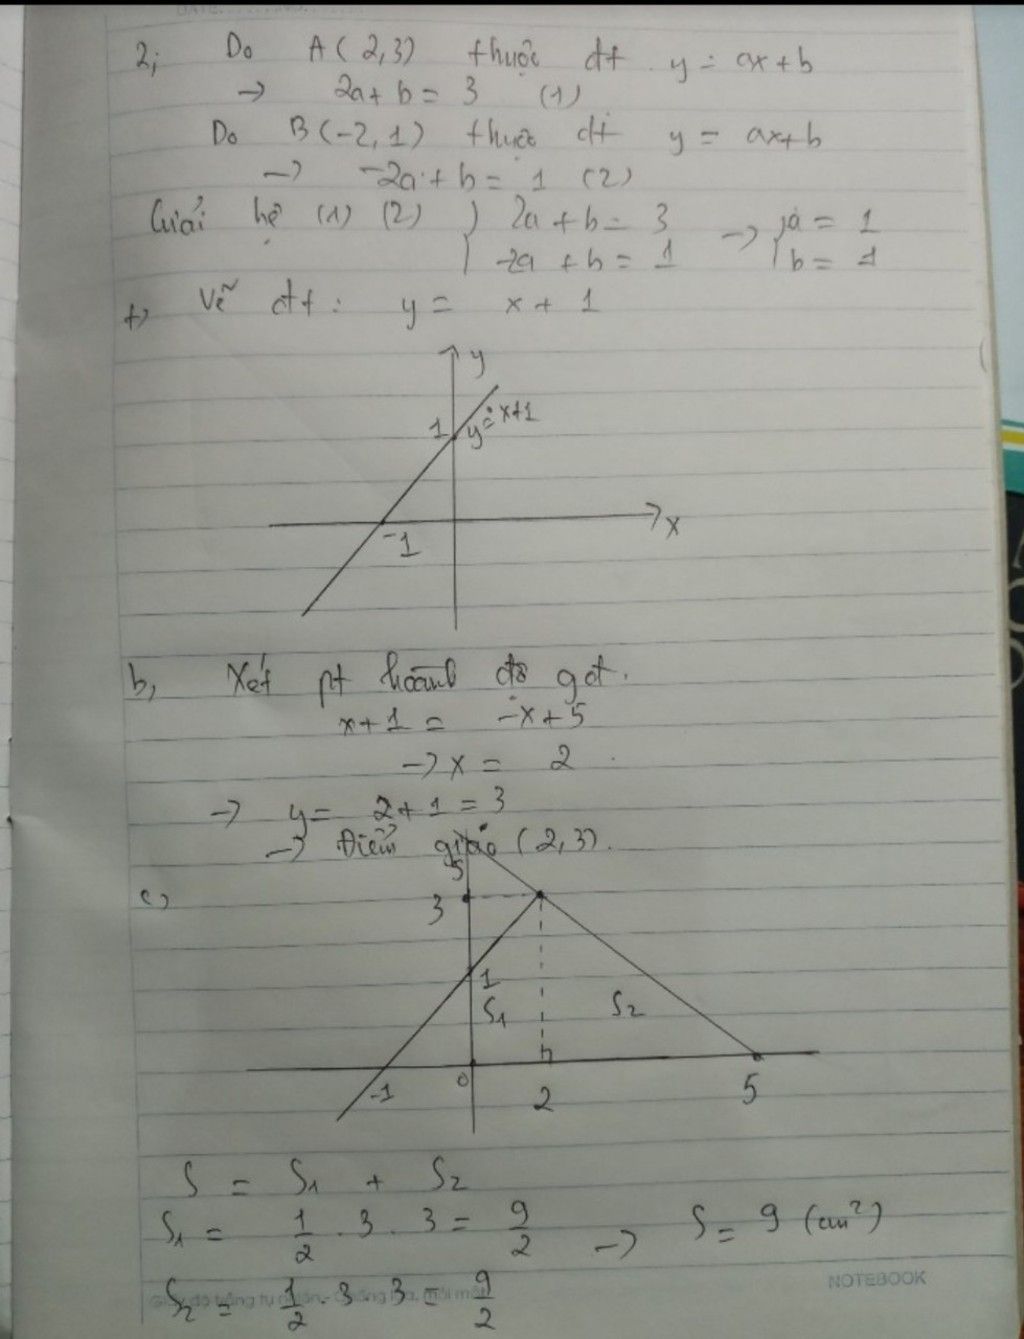 2; Do A(2,3) thuộc đt y = ax + b
→ 2a + b = 3 (1)
Do B(-2,1) thuộc đt y = ax+b
→ -2a + b = 1 (2)
Giải hệ (1) (2) { 2a + b = 3 → { a = 1
-2a + b = 1 b = 1
+) Vẽ đt: y = x + 1
y
1 y = x+1
x
-1
b, Xét pt hoành độ gđ.
x + 1 = -x + 5
→ x = 2
→ y = 2 + 1 = 3
→ Điểm giao (2,3).
5
c)
3
1
S1 S2
-1 0 2 5
S = S1 + S2
S1 = 1/2 . 3 . 3 = 9/2 → S = 9 (cm²)
S2 = 1/2 . 3 . 3 = 9/2
NOTEBOOK